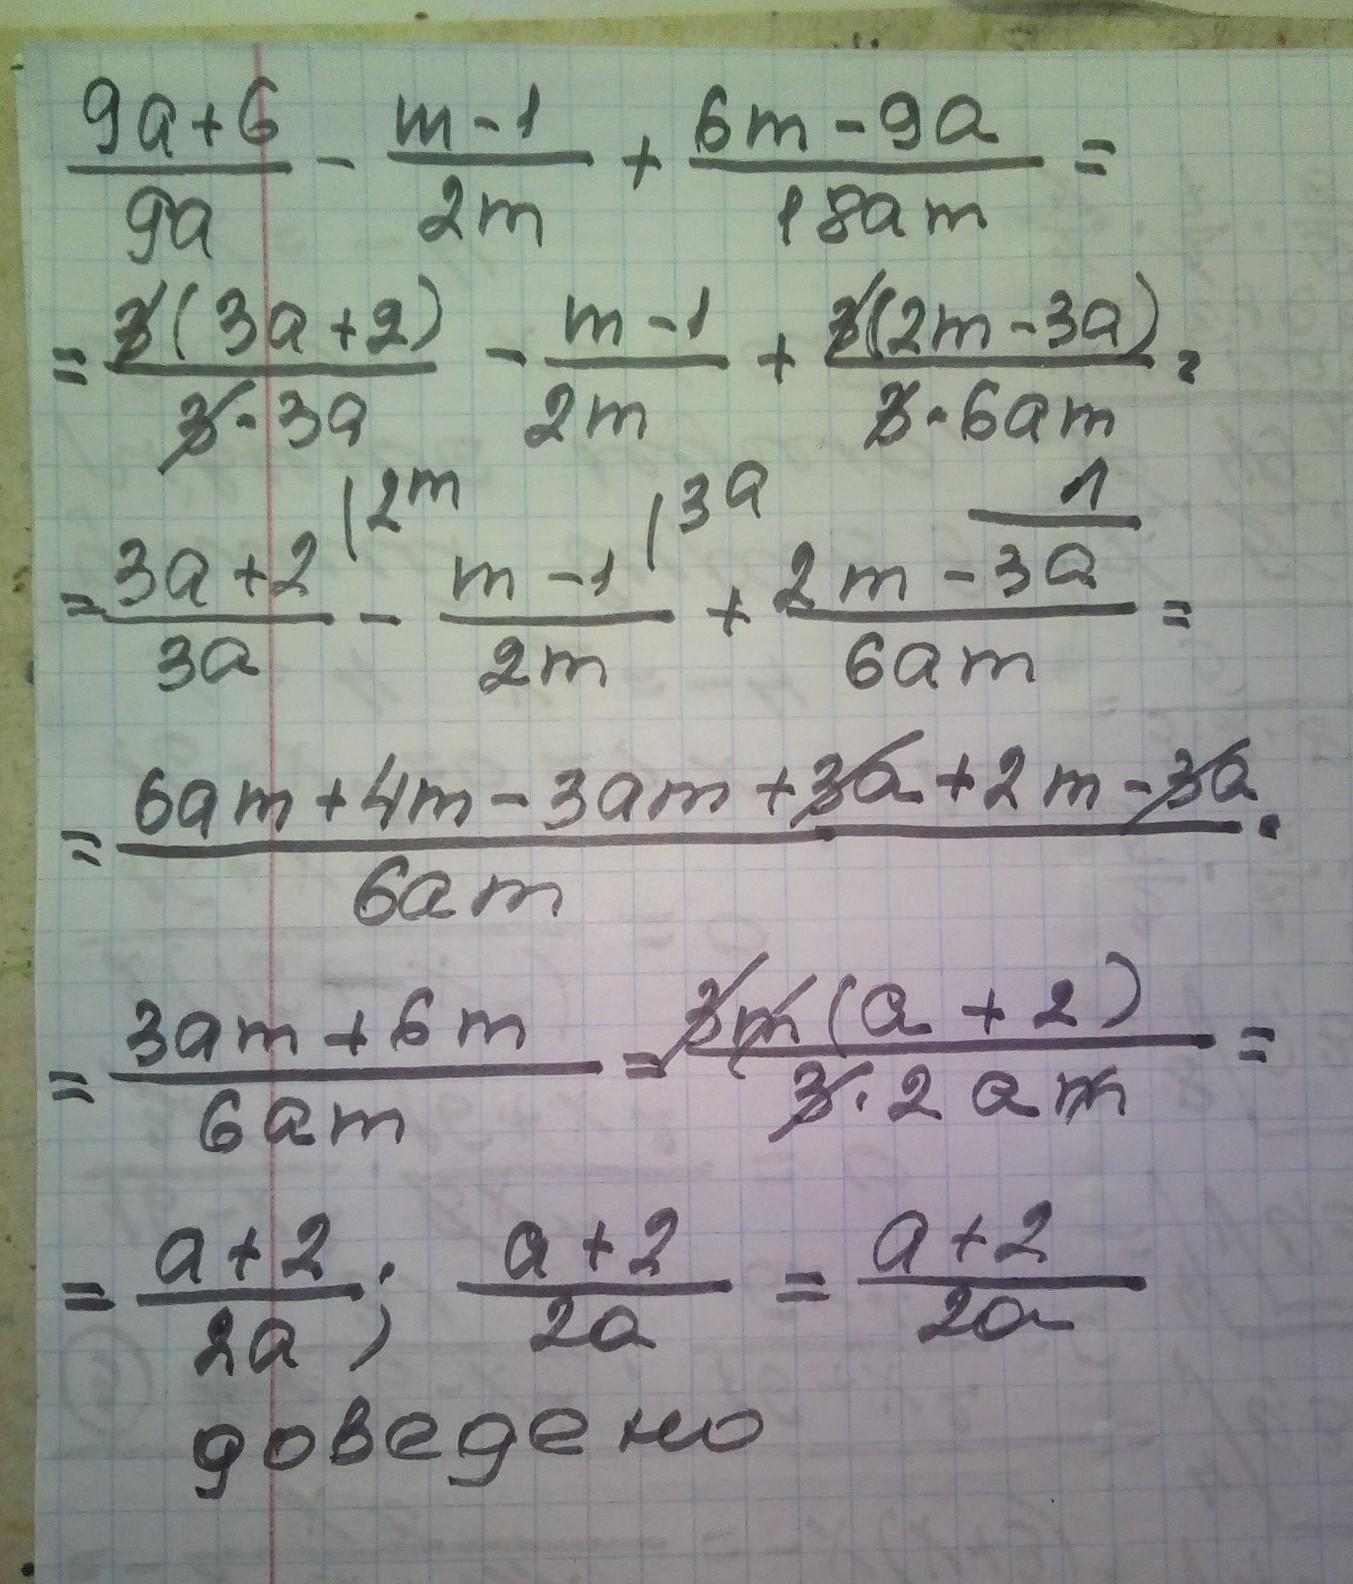 (9a+6)/(9a) - (m-1)/(2m) + (6m-9a)/(18am) =
= (3(3a+2))/(3·3a) - (m-1)/(2m) + (3(2m-3a))/(3·6am) =
= (3a+2)/(3a) |2m - (m-1)/(2m) |3a + (2m-3a)/(6am) 1 =
= (6am+4m-3am+3a+2m-3a)/(6am) =
= (3am+6m)/(6am) = (3m(a+2))/(3·2am) =
= (a+2)/(2a); (a+2)/(2a) = (a+2)/(2a)
доведено